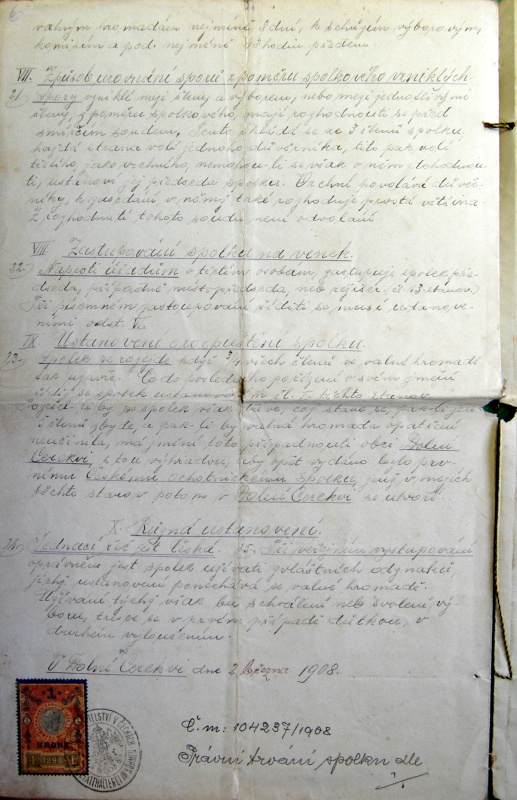 valným hromadám nejméně 8 dní, k schůzím výborovým,
komisím a pod. nejméně 48 hodin předem.
VII. Způsob urovnání sporů z poměru spolkového vzniklých.
21. Spory vzniklé mezi členy a výborem, nebo mezi jednotlivými
členy, z poměru spolkového, mají rozhodnouti se před
smírčím soudem. Tento skládá se ze 3 členů spolku.
Každá strana volí jednoho důvěrníka, tito pak volí
třetího, jako vrchního, nemohou-li se však o něm dohodnou-
ti, ustanoví jej předseda spolku. Vrchní povolává důvěr-
níky, k zasedání, v němž také rozhoduje prostá většina.
Z rozhodnutí tohoto soudu není odvolání.
VIII. Zastupování spolku na venek.
22. Naproti úřadům a třetím osobám, zastupuje spolek před-
seda, případně místopředseda, neb režisér. (čl 13. stanov.)
Při písemném zastupování říditi se nutno ustanove-
ními odst. VI.
IX. Ustanovení o rozpuštění spolku.
23. Spolek se rozejde když 3/4 všech členů ve valné hromadě
tak usnese.
3 členů zbyde, a pak-li by valná hromada opatření
neučinila, má jmění toto připadnouti obci Dolní
Cerekvi, s tou výhradou, aby opět vydáno bylo prv-
nímu českému ochotnickému spolku, jenž v mezích
těchto stanov potom v Dolní Cerekvi se utvoří.
X. Různá ustanovení.
24. Jednací řeč jest česká. 25. Při veřejném vystupování
oprávněn jest spolek užívati zvláštních odznaků,
jichž ustanovení ponechává se valné hromadě.
Užívání těchž však bez schválení neb svolení vý-
boru, tresce se v prvém případě důtkou, v
druhém vyloučením.
V Dolní Cerekvi dne 2. března 1908.
1
KRONE
1898
Č. m: 104237/1908
Právní trvání spolku dle